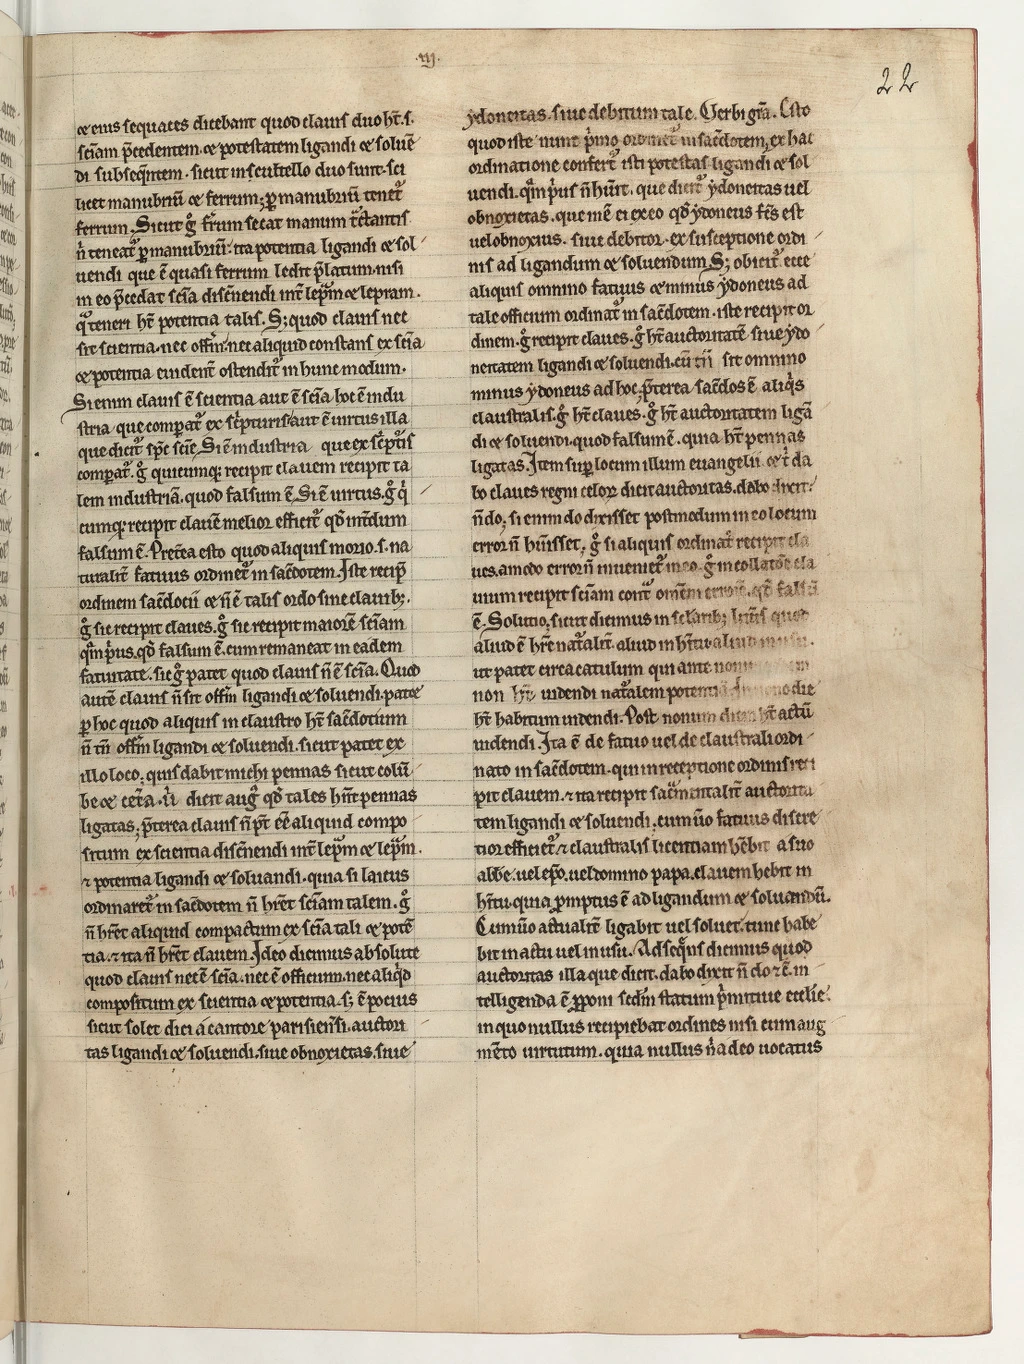 .iij.
22
⁊ eius sequaces dicebant quod clauis duo hт̄.s.
sc̄iam p̄cedentem. ⁊ potestatem ligandi ⁊ soluē
di subseq̄ntem. sicut in scultello duo sunt. sci
licet manubriū ⁊ ferrum; ꝑ manubriū tenet᷑
ferrum. Sicut g̊ fr̄rum secat manum
n̄ teneat᷑ ꝑ manubriū. ita potentia ligandi ⁊ sol
uendi que ē quasi ferrum ledit p̄latum. nisi
in eo p̄cedat sc̄ia disc̄nendi int̄ lep̄m ⁊ lepram.
teneri ht̄ potentia talis. S; quod clauis nec
sit scientia. nec offm̄. nec aliquid constans ex sc̄ia
⁊ potentia euident᷑ ostendit᷑ in hunc modum.
Si enim clauis ē scientia aut ē sc̄ia hoc ē indu
stria que compat᷑ ex sc̄pturis aut ē uirtus illa
que dicit᷑ sp̄c sc̄ie. Si ē industria que ex sc̄ptis
compat᷑. g̊ quicumq; recipit clauem recipit ta
lem industriā. quod falsum ē. Si ē uirtus. g̊ q̇
cumq; recipit clauē melior efficit᷑ qd̄ int̄dum
falsum ē. Pret̄ea esto quod aliquis morio .s. na
turalit̄ fatuus ordinet᷑ in sac̄dotem. Iste recip̄
ordinem sac̄docii ⁊ n̄ ē talis ordo sine clauib;.
g̊ sic recipit claues. g̊ sic recipit maiorē sc̄iam
qm̄ p̄us. qd̄ falsum ē. cum remaneat in eadem
fatuitate. sic g̊ patet quod clauis n̄ ē sc̄ia. Quod
autē clauis n̄ sit offm̄ ligandi ⁊ soluendi. patet
ꝑ hoc quod aliquis in claustro ht̄ sac̄dotium
n̄ tn̄ offm̄ ligandi ⁊ soluendi. sicut patet ex
illo loco; quis dabit michi pennas sicut colū
be ⁊ cet̄a. u̇ dicit aug̊ qd̄ tales hn̄t pennas
ligatas; p̄terea clauis n̄ pt̄ eē aliquid compo
situm ex scientia disc̄nendi int̄ lep̄m ⁊ lep̄m.
⁊ potentia ligandi ⁊ soluandi. quia si laicus
ordinaret᷑ in sac̄dotem n̄ hr̄et sc̄iam talem. g̊
n̄ hr̄et aliquid compactum ex sc̄ia tali ⁊ potē
tia. ⁊ ita n̄ hr̄et clauem. Ideo dicimus absolute
quod clauis nec ē sc̄ia. nec ē officium. nec aliq̇d
compositum ex scientia ⁊ potentia. s; ē pocius
sicut solet dici a cantore parisien̄si. auctori
tas ligandi ⁊ soluendi. siue obnoxietas. siue
ydoneitas. siue debitum tale. Verbi gr̄a. Esto
quod iste nunc p̄mo ordinet᷑ in sac̄dotem; ex hac
ordinatione confert᷑ isti potestas ligandi ⁊ sol
uendi. qm̄ p̄us n̄ huīt. que dicit᷑ ydoneitas uel
obnoxietas. que inē ei ex eo qd̄ ydoneus est
uel obnoxius. siue debitor. ex susceptione ordi
nis ad ligandum ⁊ soluendum. S; obicit᷑. ecce
aliquis omnino fatuus ⁊ minus ydoneus ad
tale officium ordinat᷑ in sac̄dotem. iste recipit or
dinem. g̊ recipit claues. g̊ ht̄ auctoritatē siue ydo
neitatem ligandi ⁊ soluendi. cū tn̄ sit omnino
minus ydoneus ad hoc; p̄terea sac̄dos ē aliq̇s
claustralis. g̊ ht̄ claues. g̊ ht̄ auctoritatem ligā
di ⁊ soluendi. quod falsum ē. quia ht̄ pennas
ligatas. Item sup̄ locum illum euangelii. ⁊ t̄ da
bo claues regni celoꝝ dicit auctoritas. dabo dicit.
n̄ do; si enim do dixisset postmodum in eo locum
error n̄ huīsset; g̊ si aliquis ordinat᷑ recipit cla
ues. a modo error n̄ inueniet᷑ in eo. g̊ in collatōe cla
uium recipit sc̄iam cont̄ om̄em errorē. qd̄ falsū
ē. Solutio; sicut dicimus in scl̄arib; litt̄is quod
aliud ē hr̄e nat᷑alit̄. aliud in hītu aliud in usu.
ut patet circa catulum qui ante nonū
non ht̄ uidendi nat᷑alem potentiā die
ht̄ habitum uidendi. Post nonum diem ht̄ actū
uidendi. Ita ē de fatuo uel de claustrali ordi
nato in sac̄dotem. qui in receptione ordinis reci
pit clauem. ⁊ ita recipit sac̄mentalit̄ auctorita
tem ligandi ⁊ soluendi; cum ū̊o fatuus discre
tior efficiet᷑ ⁊ claustralis licentiam hēbit a suo
abb̄e. uel ep̄o. uel domino papa. clauem hēbit in
hītu. quia ꝓmptus ē ad ligandum ⁊ soluendū.
Cum ū̊o actualit̄ ligabit uel soluet. tunc habe
bit in actu uel in usu. Ad seq̄ns dicimus quod
auctoritas illa que dicit. dabo dixit n̄ do ⁊ ē in
telligenda ē ꝓponi sedm̄ statum p̄mitiue eccl̄ie.
in quo nullus recipiebat ordines nisi cum aug
mēto uirtutum. quia nullus n̄ a deo uocatus